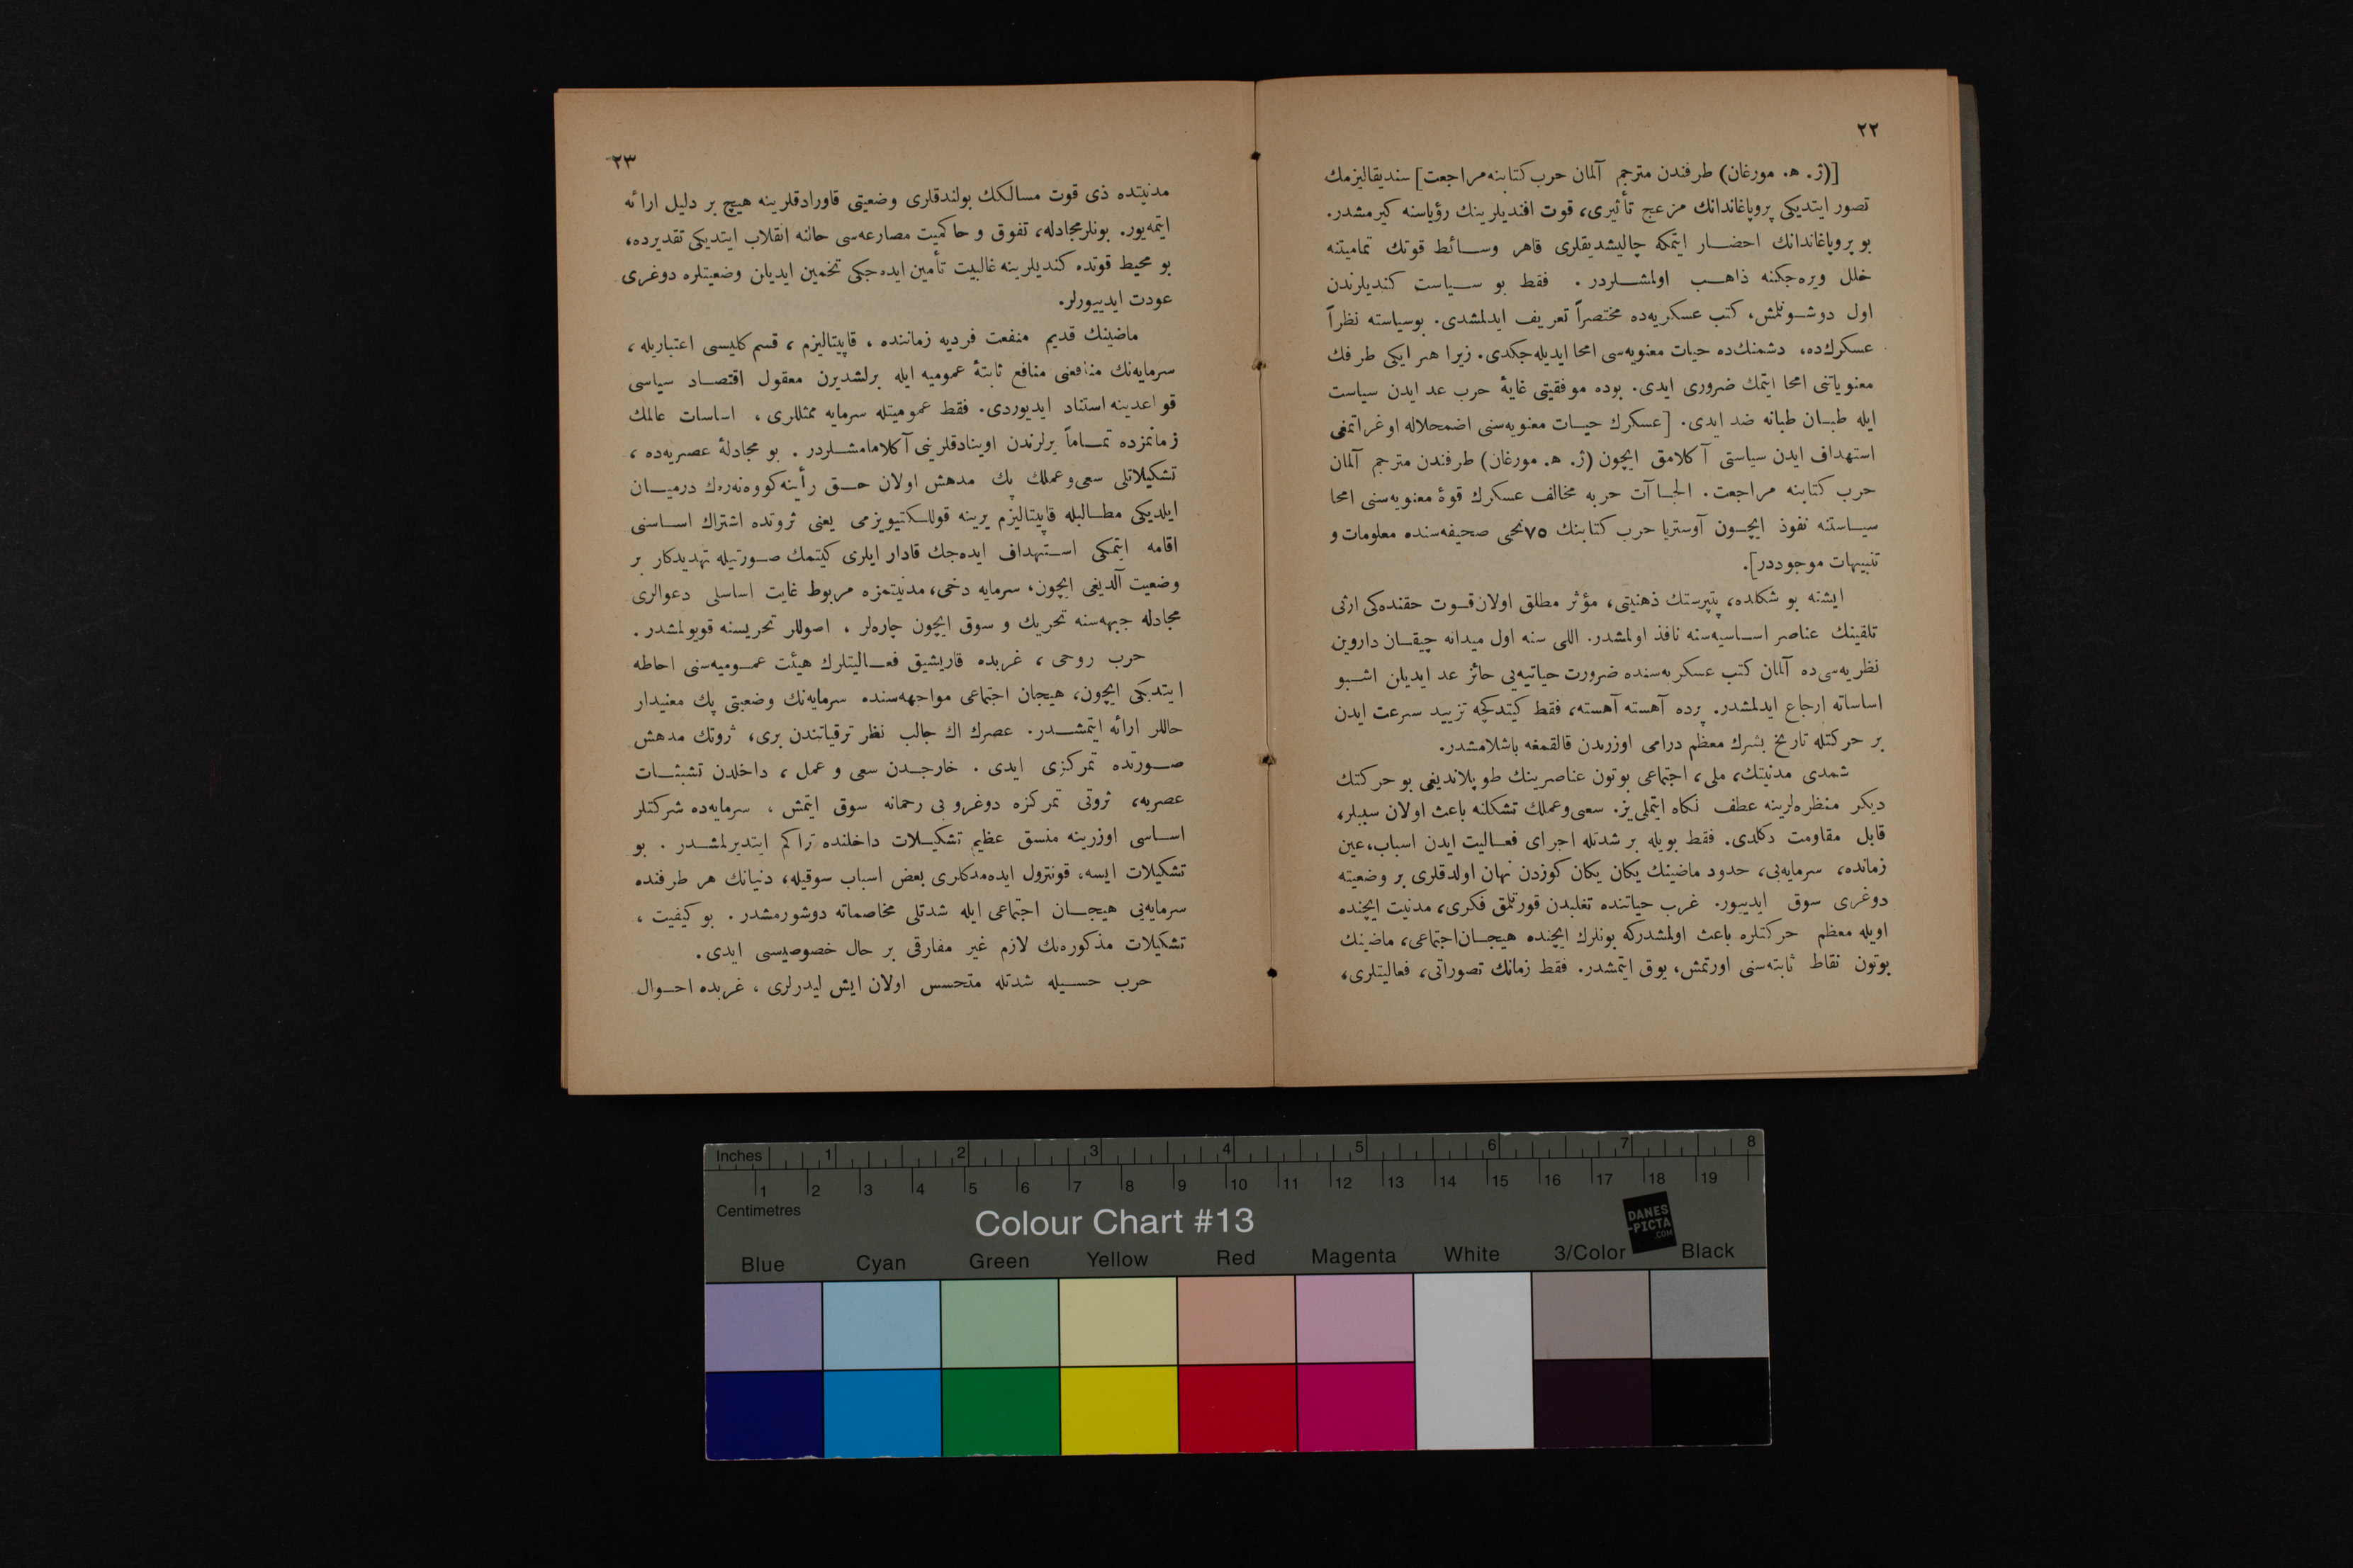 ٢٢
[(ژ. ه. مورغان) طرفندن مترجم آلمان حرب كتابنه مراجعت] سنديقاليزمك
تصور ايتديكى پروپاغاندانك مزعج تأثيرى، قوت افنديلرينك رؤياسنه كيرمشدر.
بو پروپاغاندانك احضار ايتمكه چاليشديقلرى قاهر وسائط قوتك تماميتنه
خلل ويره‌جكنه ذاهب اولمشلردر. فقط بو سياست كنديلرندن
اول دوشونلمش، كتب عسكريه‌ده مختصراً تعريف ايدلمشدى. بوسياسته نظراً
عسكرك‌ده، دشمنك‌ده حيات معنويه‌سى امحا ايديله‌جكدى. زيرا هر ايكى طرفك
معنوياتنى امحا ايتمك ضرورى ايدى. بوده موفقيتى غايهٔ حرب عد ايدن سياست
ايله طبان طبانه ضد ايدى. [عسكرك حيات معنويه‌سنى اضمحلاله اوغراتمغى
استهداف ايدن سياستى آكلامق ايچون (ژ. ه. مورغان) طرفندن مترجم آلمان
حرب كتابنه مراجعت. الجاآت حربه مخالف عسكرك قوهٔ معنويه‌سنى امحا
سياستنه نفوذ ايچون آوستريا حرب كتابنك ٧٥نجى صحيفه‌سنده معلومات و
تنبيهات موجوددر].
ايشته بو شكلده، پتپرستك ذهنيتى، مؤثر مطلق اولان قوت حقنده‌كى ارثى
تلقينك عناصر اساسيه‌سنه نافذ اولمشدر. اللى سنه اول ميدانه چيقان داروين
نظريه‌سى‌ده آلمان كتب عسكريه‌سنده ضرورت حياتيه‌يى حائز عد ايديلن اشبو
اساساته ارجاع ايدلمشدر. پرده آهسته آهسته، فقط كيتدكچه تزييد سرعت ايدن
بر حركتله تاريخ بشرك معظم درامى اوزرندن قالقمغه باشلامشدر.
شمدى مدنيتك، ملى، اجتماعى بوتون عناصرينك طوپلانديغى بو حركتك
ديكر منظره‌لرينه عطف نكاه ايتملى‌يز. سعى‌وعملك تشكلنه باعث اولان سببلر،
قابل مقاومت دكلدى. فقط بويله بر شدتله اجراى فعاليت ايدن اسباب، عين
زمانده، سرمايه‌يى، حدود ماضينك يكان يكان كوزدن نهان اولدقلرى بر وضعيته
دوغرى سوق ايدييور. غرب حياتنده تغلبدن قورتلمق فكرى، مدنيت ايچنده
اويله معظم حركتلره باعث اولمشدركه بونلرك ايچنده هيجان‌اجتماعى، ماضينك
بوتون نقاط ثابته‌سنى اورتمش، يوق ايتمشدر. فقط زمانك تصوراتى، فعاليتلرى،
٢٣
مدنيتده ذى قوت مسالكك بولندقلرى وضعيتى قاورادقلرينه هيچ بر دليل ارائه
ايتمه‌يور. بونلرمجادله، تفوق و حاكميت مصارعه‌سى حالنه انقلاب ايتديكى تقديرده،
بو محيط قوتده كنديلرينه غالبيت تأمين ايده‌جكى تخمين ايديلن وضعيتلره دوغرى
عودت ايدييورلر.
ماضينك قديم منفعت فرديه زماننده، قاپيتاليزم، قسم كليسى اعتباريله،
سرمايه‌نك منافعنى منافع ثابتهٔ عموميه ايله برلشديرن معقول اقتصاد سياسى
قواعدينه استناد ايديوردى. فقط عموميتله سرمايه ممثللرى، اساسات عالمك
زمانمزده تماماً يرلرندن اوينادقلرينى آكلامامشلردر. بو مجادلهٔ عصريه‌ده،
تشكيلاتلى سعى‌وعملك پك مدهش اولان حق رأينه كووه‌نه‌رك درميان
ايلديكى مطالبله قاپيتاليزم يرينه قوللكتيويزمى يعنى ثروتده اشتراك اساسنى
اقامه ايتمكى استهداف ايده‌جك قادار ايلرى كيتمك صورتيله تهديدكار بر
وضعيت آلديغى ايچون، سرمايه دخى، مدنيتمزه مربوط غايت اساسلى دعوالرى
مجادله جبهه‌سنه تحريك و سوق ايچون چاره‌لر، اصوللر تحريسنه قويولمشدر.
حرب روحى، غربده قاريشيق فعاليتلرك هيئت عموميه‌سنى احاطه
ايتديكى ايچون، هيجان اجتماعى مواجهه‌سنده سرمايه‌نك وضعيتى پك معنيدار
حاللر ارائه ايتمشدر. عصرك اك جالب نظر ترقياتندن برى، ثروتك مدهش
صورتده تمركزى ايدى. خارجدن سعى و عمل، داخلدن تشبثات
عصريه، ثروتى تمركزه دوغرو بى رحمانه سوق ايتمش، سرمايه‌ده شركتلر
اساسى اوزرينه منسق عظيم تشكيلات داخلنده تراكم ايتديرلمشدر. بو
تشكيلات ايسه، قونترول ايده‌مدكلرى بعض اسباب سوقيله، دنيانك هر طرفنده
سرمايه‌يى هيجان اجتماعى ايله شدتلى مخاصماته دوشورمشدر. بو كيفيت،
تشكيلات مذكوره‌نك لازم غير مفارقى بر حال خصوصيسى ايدى.
حرب حسيله شدتله متحسس اولان ايش ليدرلرى، غربده احوال
Inches 1 2 3 4 5 6 7 8
1 2 3 4 5 6 7 8 9 10 11 12 13 14 15 16 17 18 19
Centimetres
Colour Chart #13
DANES
-PICTA
.COM
Blue Cyan Green Yellow Red Magenta White 3/Color Black